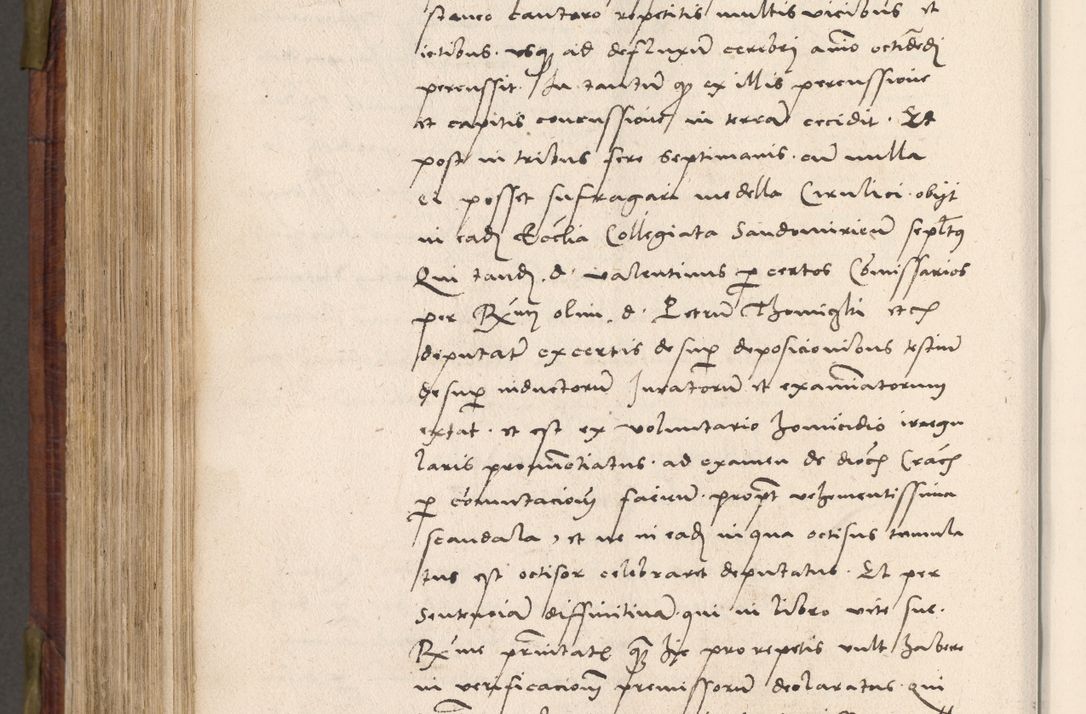 staneo cantaro repetitis multis vicibus et
ictibus. usq ad defluxum cerebri animo occidendi
percussit. In tantum qz ex illis percussione
et capitis concussione in terram cecidit. Et
post in tribus fere septimanis. cum nulla
ei posset sufragari medella Cirulici. obijt
in eadem Ecclia Collegiata Sandomiriens sepultus
Qui tandem. d. valentinus per certos Comissarios
per Rxm olim. d. Petrum Thomiczki etc
deputatos ex certis desuper deposicionibus testium
desuper inductorum Juratorum et examinatorum
extat. et est ex voluntario homicidio irregu
laris pronunctiatus. ad examen de dioc Crac
per comutacionem faciend. propter vehementissima
scandala, et ne in eadem in qua occisus tumula
tus est occisor celebraret deputatus. Et per
Sententiam diffinitivam. qui in libro vite sue.
Rxme prnitatis quam hic pro repetitis vult habere
in verificacionem premissorum declaratus. qui